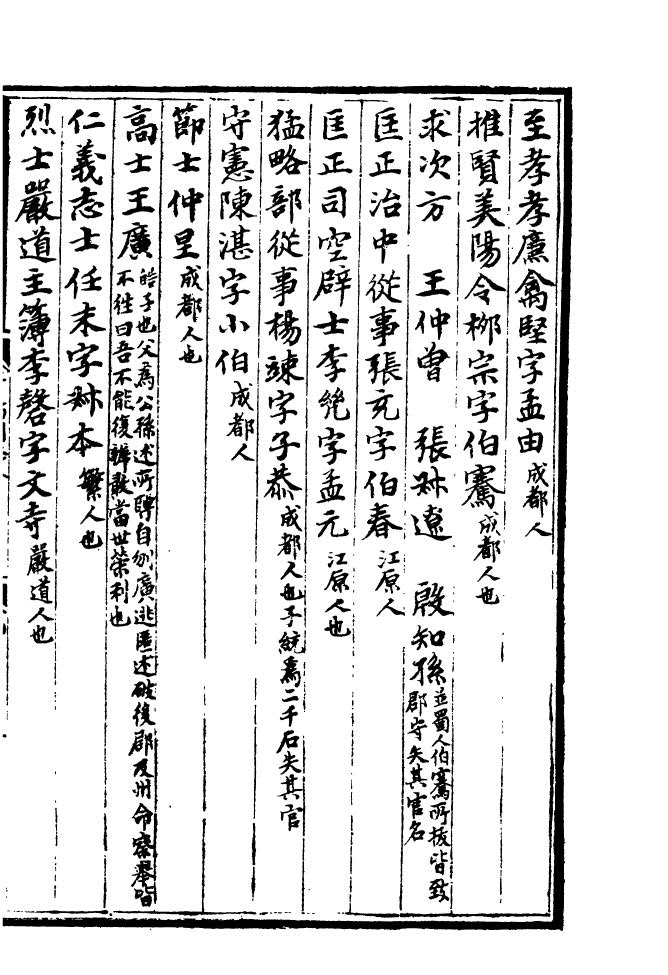 至孝孝廉禽堅字孟由成都人
推賢美陽令柳宗字伯騫成都人也
求次方　王仲曾　張叔遼　殷知孫並蜀人伯騫所拔皆致郡守失其官名
匡正治中從事張充字伯春江原人
匡正司空辟士李㡬字孟元江原人也
猛略部從事楊竦字子恭成都人也子統爲二千石失其官
守憲陳湛字小伯成都人
節士仲呈成都人也
高士王廣皓子也父爲公孫述所聘自刎廣逃匿述破後郡及州命察舉皆不往曰吾不能復辨散當世榮利也
仁義志士任末字叔本繁人也
烈士嚴道主簿李磬字文寺嚴道人也